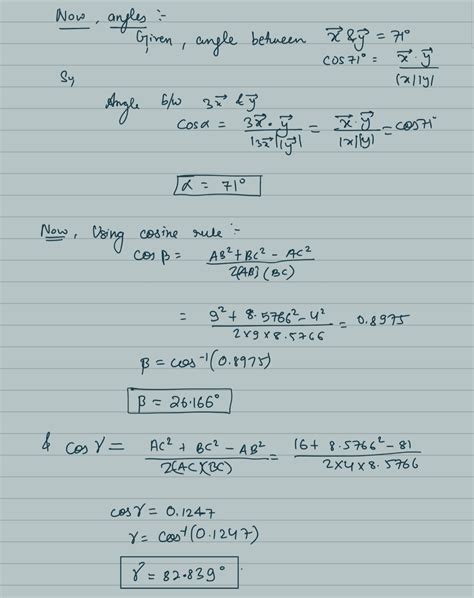 Now, angles :-
Given, angle between x⃗ & y⃗ = 71°
cos71° = x⃗ · y⃗ / |x||y|
Sy
Angle b/w 3x⃗ & y⃗
cosα = 3x⃗ · y⃗ / |3x⃗||y⃗| = x⃗ · y⃗ / |x||y| = cos71°
α = 71°
Now, Using cosine rule :-
cos β = AB² + BC² - AC² / 2(AB)(BC)
= 9² + 8.5766² - 4² / 2×9×8.5766 = 0.8975
β = cos⁻¹(0.8975)
β = 26.166°
& cos γ = AC² + BC² - AB² / 2(AC)(BC) = 16 + 8.5766² - 81 / 2×4×8.5766
cosγ = 0.1247
γ = cos⁻¹(0.1247)
γ = 82.839°